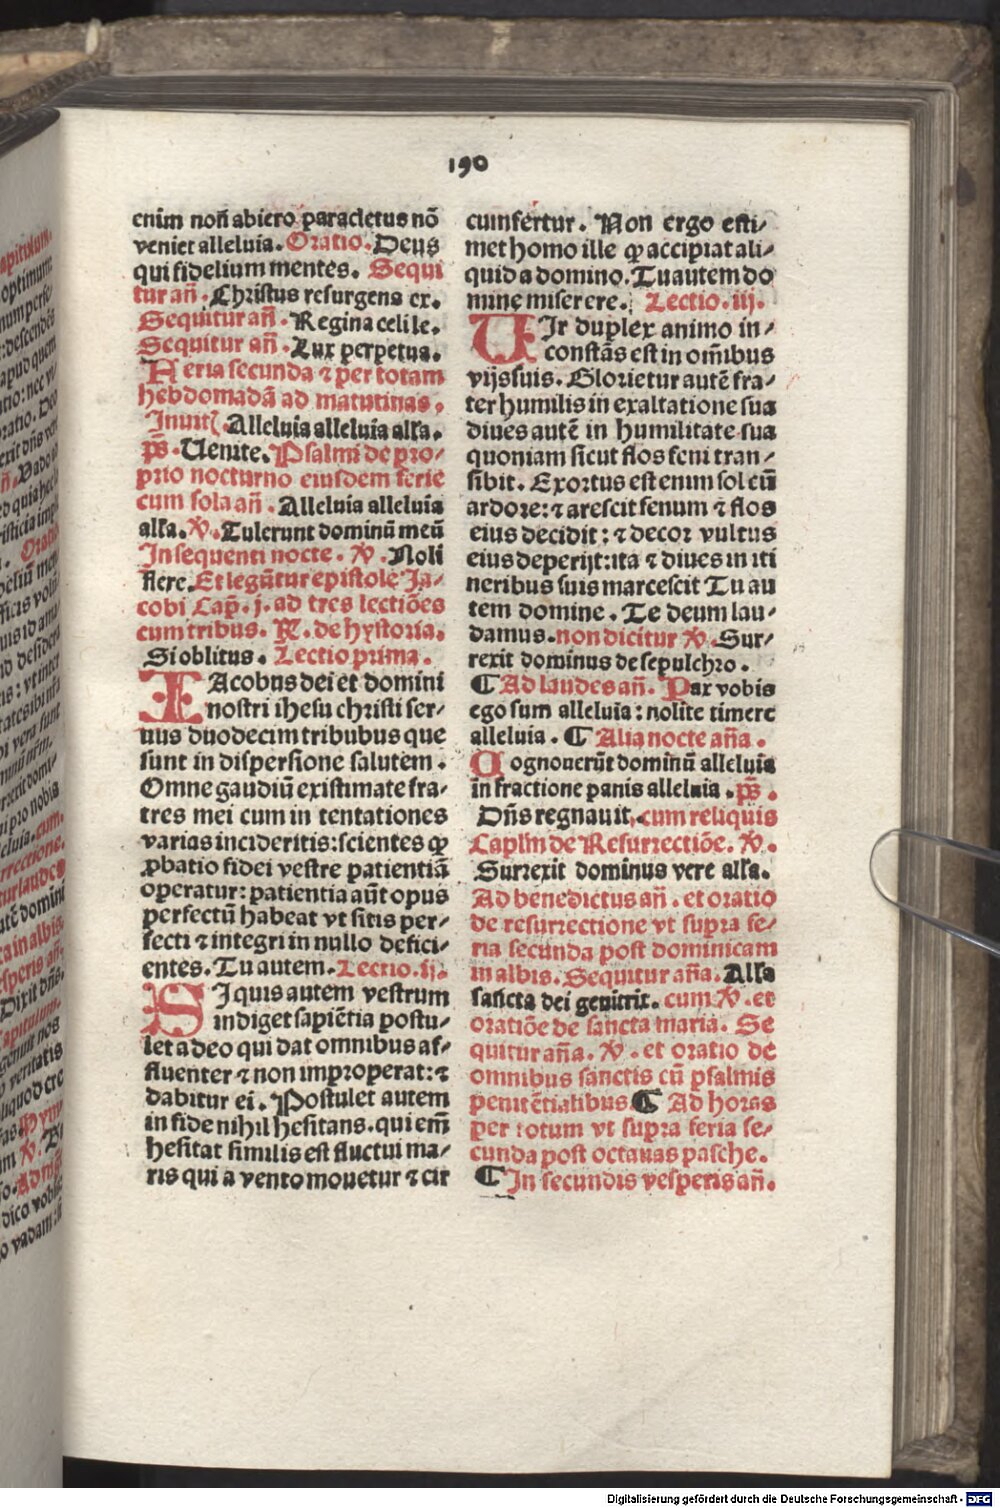 190
enim non̄ abiero paracletus nō
veniet alleluia. Oratio. Deus
qui fidelium mentes. Sequi
tur an̄. Christus resurgens ex.
Sequitur an̄. Regina celi le.
Sequitur an̄. Lux perpetua.
Feria secunda ⁊ per totam
hebdomadā ad matutinas.
Inuit. Alleluia alleluia alľa.
p̄s. Uenite. Psalmi de pro⸗
prio nocturno eiusdem ferie
cum sola an̄. Alleluia alleluia
alľa. ℣. Tulerunt dominū meū
In sequenti nocte. ℣. Noli
flere. Et legūtur epistole Ja⸗
cobi Cap̄. j. ad tres lectiōes
cum tribus. ℞. de hystoria.
Si oblitus. Lectio prima.
IAcobus dei et domini
nostri ihesu christi ser⸗
uus duodecim tribubus que
sunt in dispersione salutem.
Omne gaudiū existimate fra⸗
tres mei cum in tentationes
varias incideritis: scientes ꝙ
ꝓbatio fidei vestre patientiā
operatur: patientia aūt opus
perfectū habeat vt sitis per⸗
fecti ⁊ integri in nullo defici⸗
entes. Tu autem. Lectio. ij.
SI quis autem vestrum
indiget sapiētia postu⸗
let a deo qui dat omnibus af⸗
fluenter ⁊ non improperat: ⁊
dabitur ei. Postulet autem
in fide nihil hesitans. qui em̄
hesitat similis est fluctui ma⸗
ris qui a vento mouetur ⁊ cir
cumfertur. Non ergo esti⸗
met homo ille ꝙ accipiat ali⸗
quid a domino. Tu autem do
mine miserere. Lectio. iij.
UIr duplex animo in⸗
constās est in om̄ibus
vijs suis. Glorietur autē fra⸗
ter humilis in exaltatione sua
diues autē in humilitate sua
quoniam sicut flos feni tran⸗
sibit. Exortus est enim sol cū
ardore: ⁊ arescit fenum ⁊ flos
eius decidit: ⁊ decor vultus
eius deperijt: ita ⁊ diues in iti
neribus suis marcescit Tu au
tem domine. Te deum lau⸗
damus. non dicitur ℣. Sur⸗
rexit dominus de sepulchro.
¶ Ad laudes an̄. Pax vobis
ego sum alleluia: nolite timere
alleluia. ¶ Alia nocte an̄a.
Cognouerūt dominū alleluia
in fractione panis alleluia. p̄s.
Dn̄s regnauit, cum reliquis
Caplm̄ de Resurrectiōe. ℣.
Surrexit dominus vere alľa.
Ad benedictus an̄. et oratio
de resurrectione vt supra fe⸗
ria secunda post dominicam
in albis. Sequitur an̄a. Alľa
sancta dei genitrix. cum ℣. et
oratiōe de sancta maria. Se
quitur an̄a. ℣. et oratio de
omnibus sanctis cū psalmis
penitētialibus. ¶ Ad horas
per totum vt supra feria se⸗
cunda post octauas pasche.
¶ In secundis vesperis an̄.
Digitalisierung gefördert durch die Deutsche Forschungsgemeinschaft - DFG